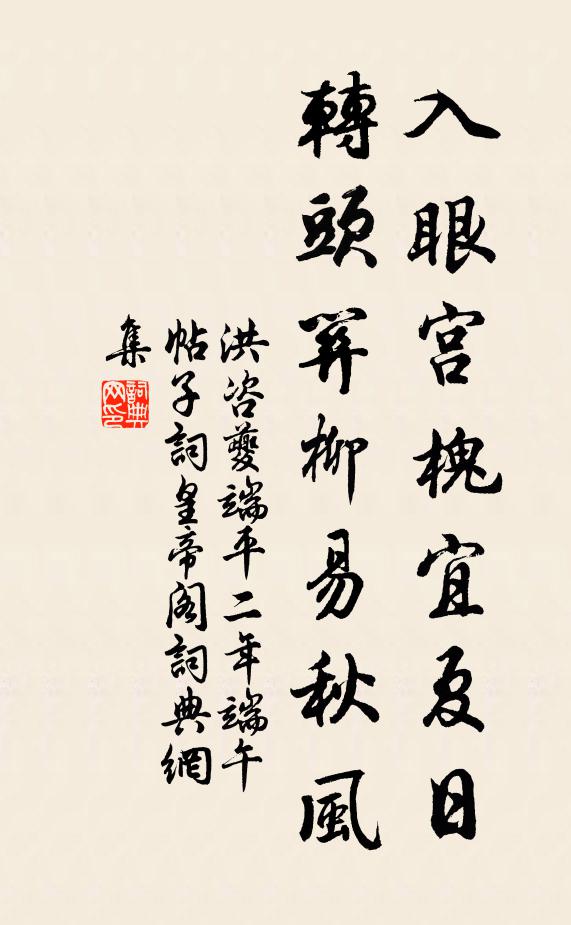 入眼宮槐宜夏日
轉頭柳易秋風
洪咨夔端平二年端午
帖子詞皇帝閣詞典網
集
詞典网印